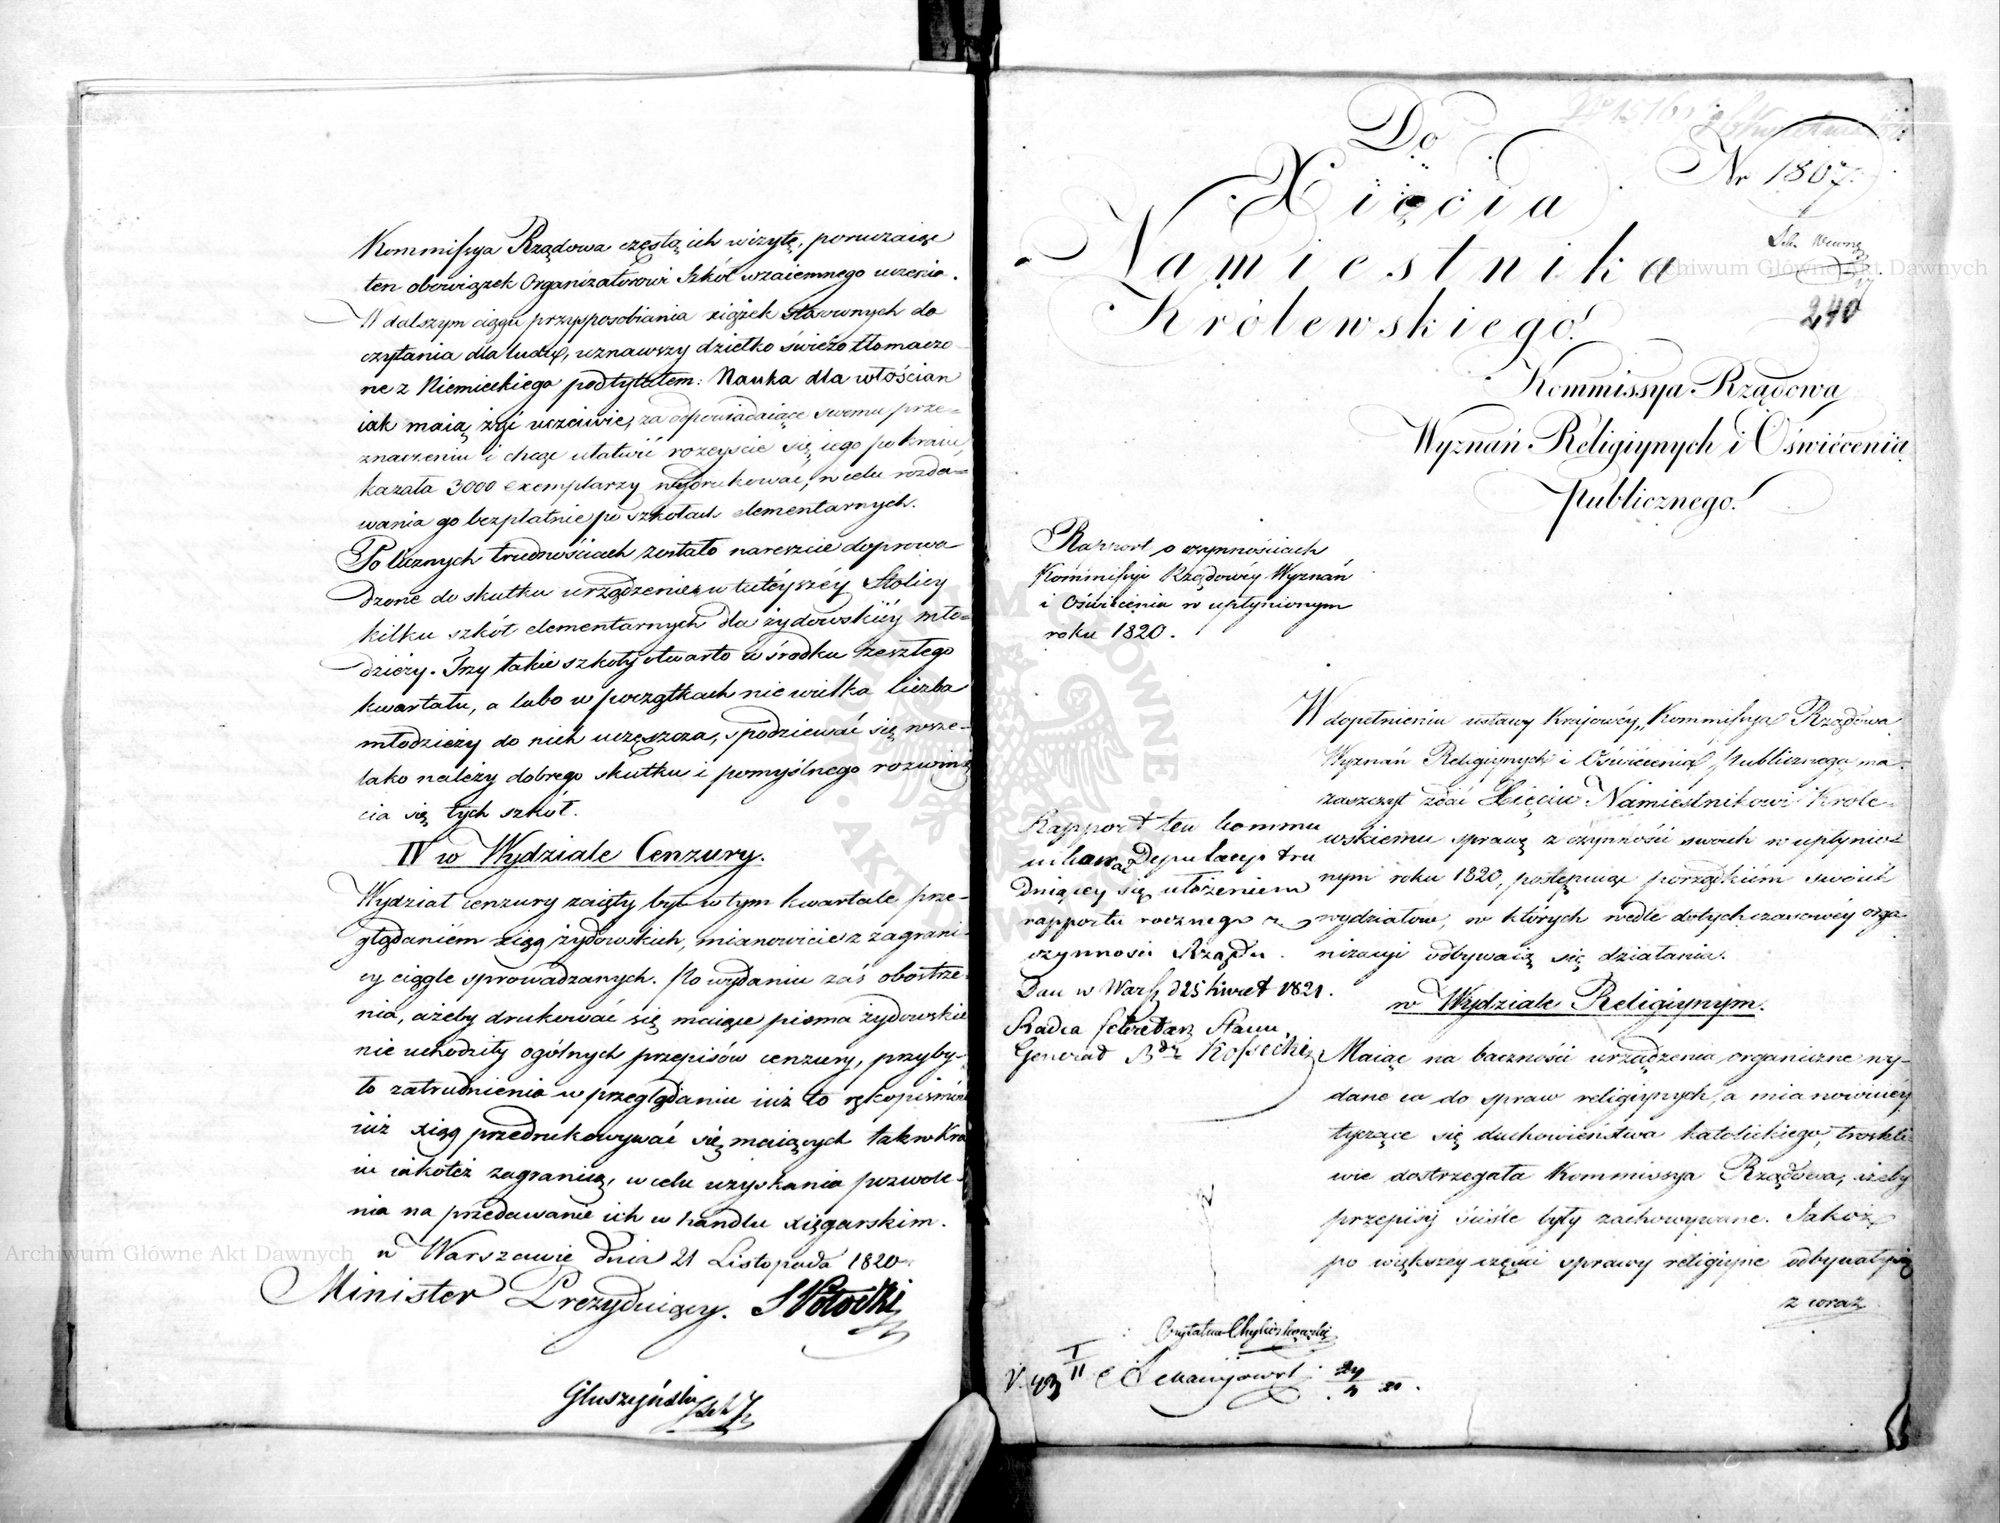 Kommissya Rządowa częstą ich wizytę, poruczaiąc
ten obowiązek Organizatorowi Szkół wzaiemnego uczenia.
W dalszym ciągu przysposobiania xiążek stosownych do
czytania dla ludu, uznawszy dziełko świeżo tłomaczo-
ne z Niemieckiego pod tytułem: Nauka dla włościan
iak maią żyć uczciwie, za odpowiadaiące swemu prze-
znaczeniu i chcąc ułatwić rozeyście się iego po kraiu,
kazała 3000 exemplarzy wydrukować, w celu rozda-
wania go bezpłatnie po szkołach elementarnych.
Po licznych trudnościach zostało nareszcie doprowa-
dzone do skutku urządzenie w tuteyszéy Stolicy
kilku szkół elementarnych dla żydowskiéy mło-
dzieży. Trzy takie szkoły otwarto w środku zeszłego
kwartału, a lubo w początkach nie wielka liczba
młodzieży do nich uczęszcza, spodziewać się wsze-
lako należy dobrego skutku i pomyślnego rozwinię
cia się tych szkół.
IV w Wydziale Cenzury.
Wydział cenzury zaięty był w tym kwartale prze-
glądaniem xiąg żydowskich, mianowicie z zagrani-
cy ciągle sprowadzanych. Po wydaniu zaś obostrze-
nia, ażeby drukować się maiące pisma żydowskie
nie uchodziły ogólnych przepisów cenzury, przyby-
ło zatrudnienia w przeglądaniu iuż to rękopismów
iuż xiąg przedrukowywać się maiących tak w Kra
iu iakoteż zagranicą, w celu uzyskania pozwole-
nia na przedawanie ich w handlu xięgarskim.
w Warszawie dnia 21 Listopada 1820
Minister Prezyduiący. S Potocki
Głuszyński
Do
Xięcia
Namiestnika
Królewskiego!
Nr 1807.
240
Kommissya Rządowa
Wyznań Religiynych i Oświécenia
Publicznego!
Rapport o czynnościach
Kommissyi Rządowéy Wyznań
i Oświecenia w upłynionym
roku 1820.
W dopełnieniu ustawy Krajowéy, Kommissya Rządowa
Wyznań Religiynych i Oświecenia Publicznego ma
zaszczyt zdać Xięciu Namiestnikowi Króle-
wskiemu sprawę z czynności swoich w upłynio-
nym roku 1820, postępuiąc porządkiem swoich
wydziałów, w których wedle dotychczasowéy orga-
nizacyi odbywaią się działania.
Rapport ten kommu
nikować Deputacyi tru
dniącey się ułożeniem
rapportu rocznego z
czynności Rządu.
Dan w Warsz d 25 kwiet 1821.
Radca Sekretarz Stanu,
Generał Bdy Kossecki
w Wydziale Religiynym.
Maiąc na baczności urządzenia organiczne wy-
dane co do spraw religiynych, a mianowiciéy
tyczące się duchowieństwa katolickiego, troskli
wie dostrzegała Kommissya Rządowa, iżeby
przepisy ściśle były zachowywane. Jakoż
po większey części sprawy religiyne odbywał się
z coraz